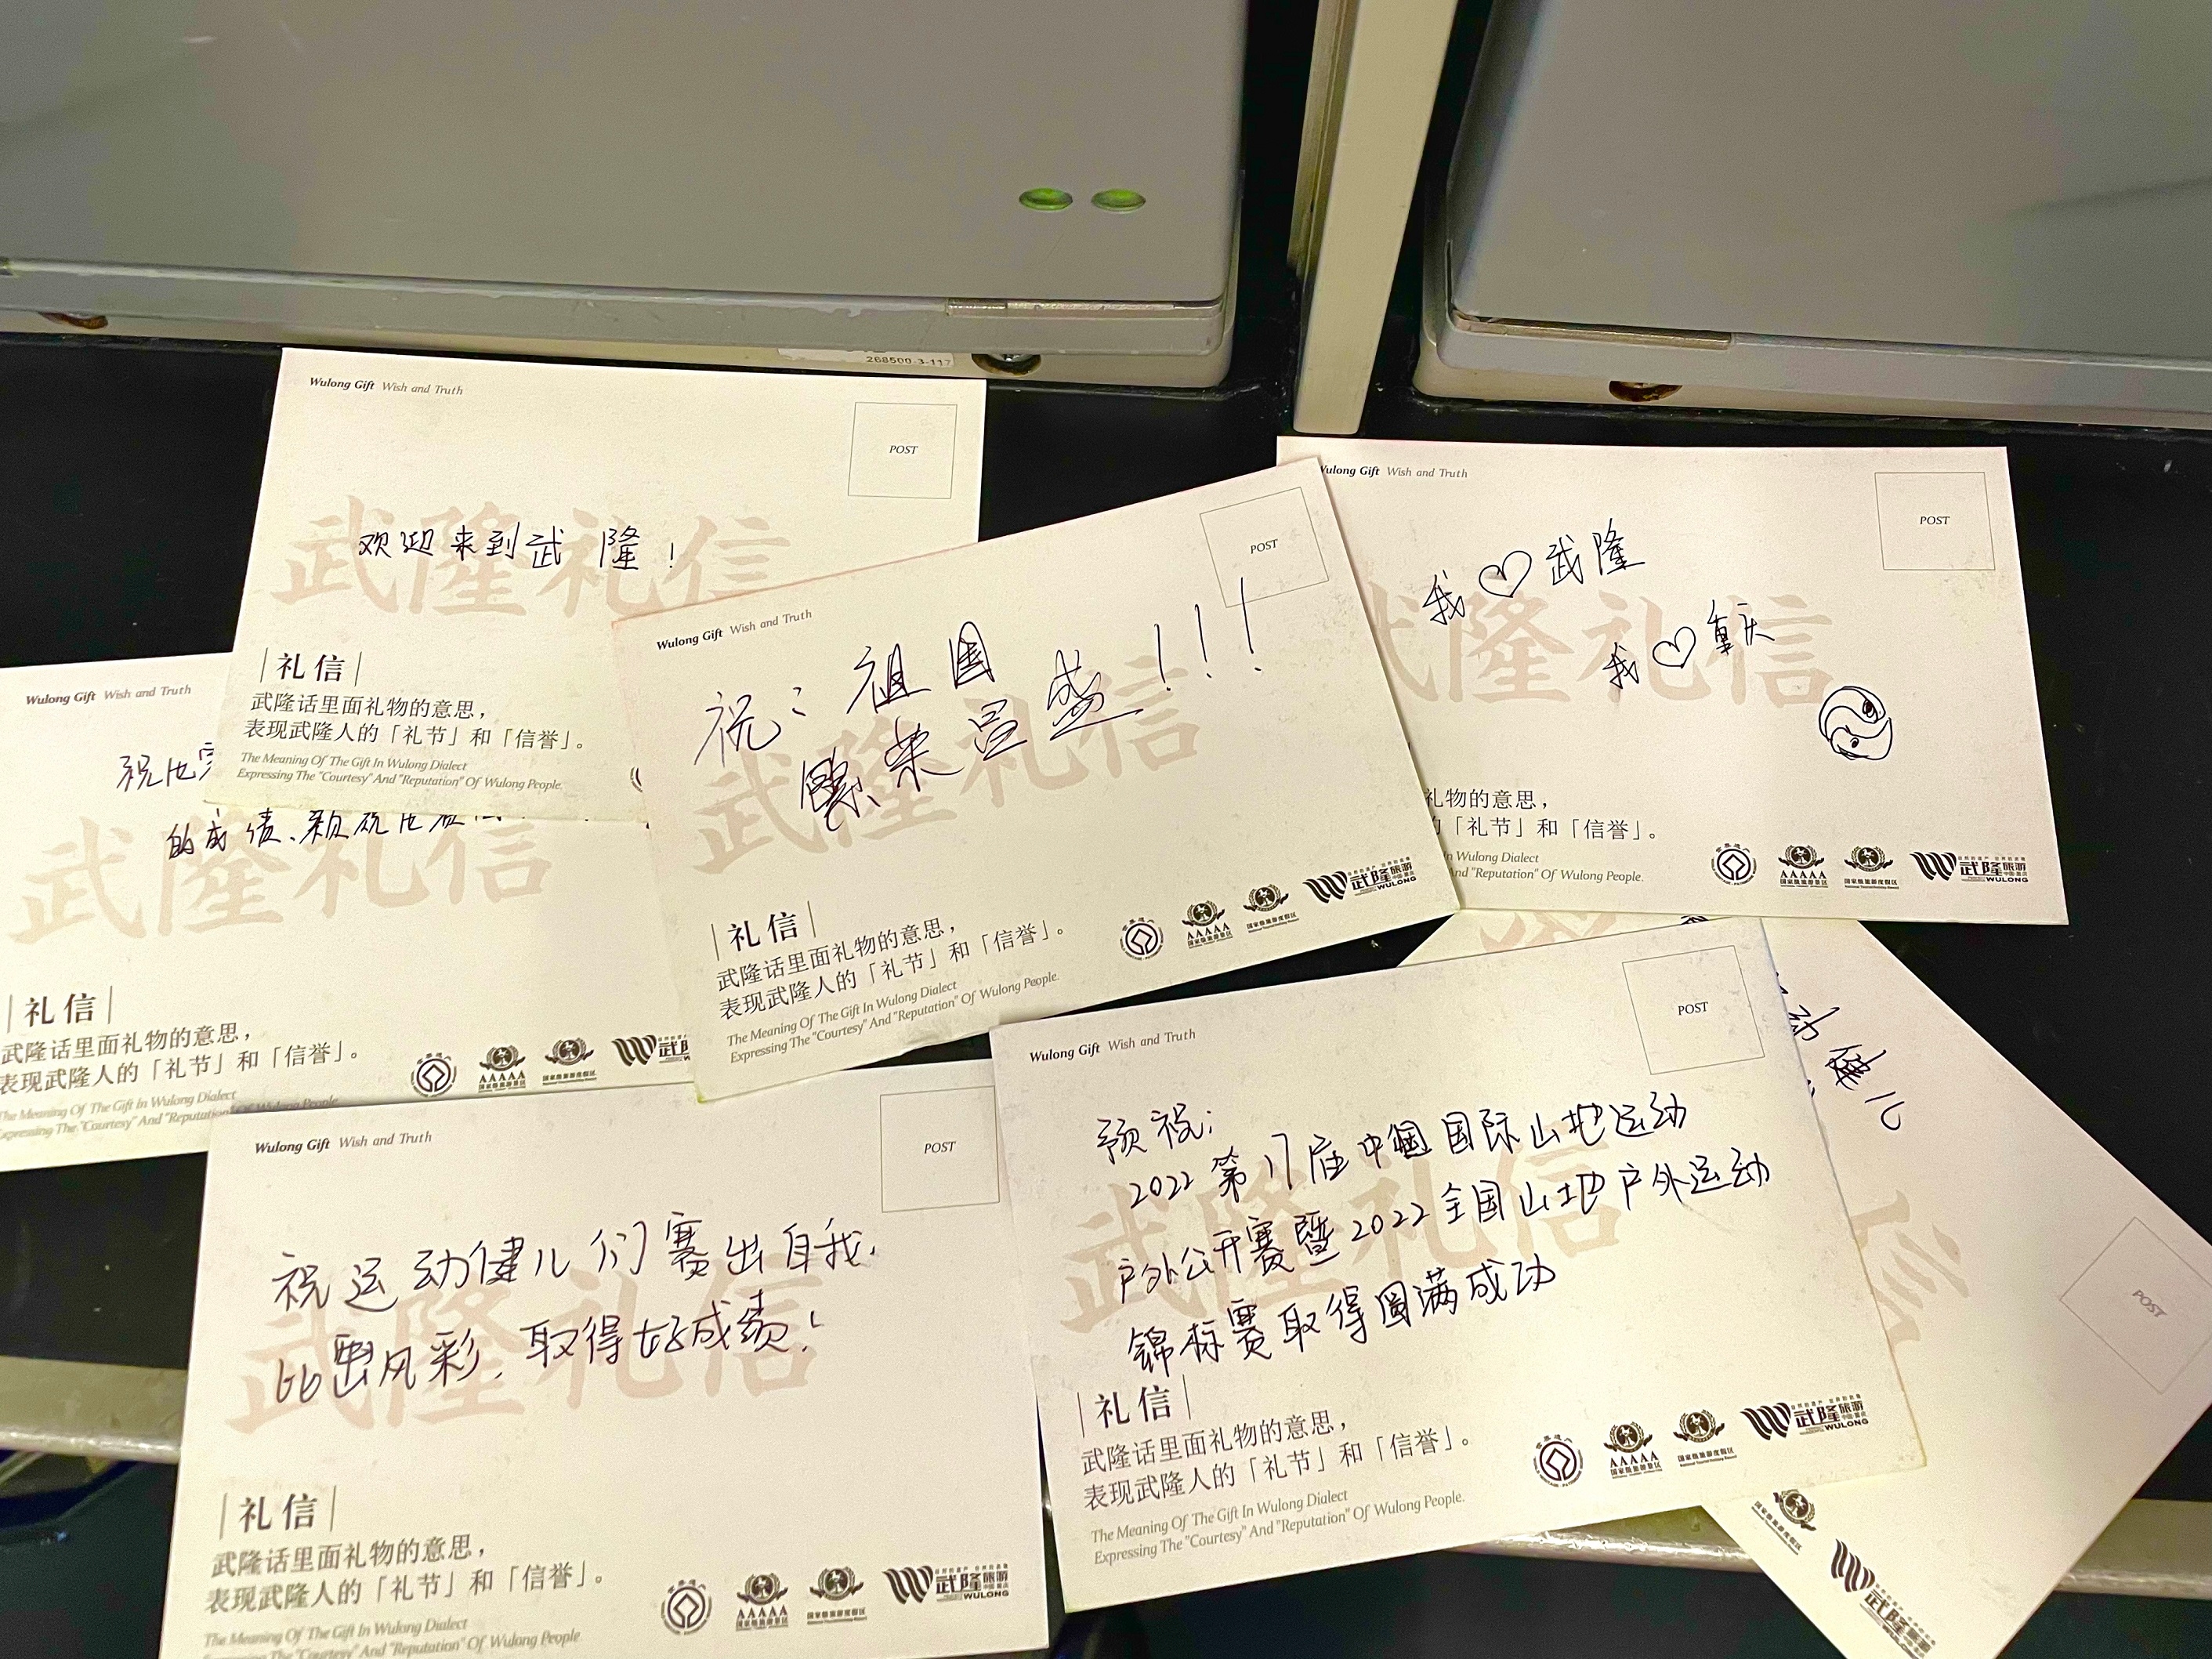 268500-3-117
Wulong Gift Wish and Truth
POST
武隆礼信
欢迎来到武隆!
礼信
武隆话里面礼物的意思，
表现武隆人的「礼节」和「信誉」。
The Meaning Of The Gift In Wulong Dialect
Expressing The "Courtesy" And "Reputation" Of Wulong People.
Wulong Gift Wish and Truth
POST
武隆礼信
祝：祖国
繁荣昌盛!!!
礼信
武隆话里面礼物的意思，
表现武隆人的「礼节」和「信誉」。
The Meaning Of The Gift In Wulong Dialect
Expressing The "Courtesy" And "Reputation" Of Wulong People.
AAAAA
国家级旅游景区
国家级旅游度假区
武隆旅游
WULONG
Wulong Gift Wish and Truth
POST
武隆礼信
我♡武隆
我♡重庆
礼物的意思，
「礼节」和「信誉」。
In Wulong Dialect
And "Reputation" Of Wulong People.
AAAAA
国家级旅游景区
国家级旅游度假区
武隆旅游
WULONG
Wulong Gift Wish and Truth
武隆礼信
祝
的成绩、
礼信
武隆话里面礼物的意思，
表现武隆人的「礼节」和「信誉」。
The Meaning Of The Gift In Wulong Dialect
Expressing The "Courtesy" And "Reputation" Of Wulong People
AAAAA
国家级旅游景区
国家级旅游度假区
武
Wulong Gift Wish and Truth
POST
武隆礼信
祝运动健儿们赛出自我.
比出风彩.取得好成绩!
礼信
武隆话里面礼物的意思，
表现武隆人的「礼节」和「信誉」。
The Meaning Of The Gift In Wulong Dialect
Expressing The "Courtesy" And "Reputation" Of Wulong People
AAAAA
国家级旅游景区
国家级旅游度假区
武隆旅游
WULONG
Wulong Gift Wish and Truth
POST
武隆礼信
预祝:
2022第17届中国国际山地运动
户外公开赛暨2022全国山地户外运动
锦标赛取得圆满成功
礼信
武隆话里面礼物的意思，
表现武隆人的「礼节」和「信誉」。
The Meaning Of The Gift In Wulong Dialect
Expressing The "Courtesy" And "Reputation" Of Wulong People.
AAAAA
国家级旅游景区
国家级旅游度假区
武隆旅游
WULONG
动健儿
信
POST
国家级旅游度假区
武隆旅游
WULONG